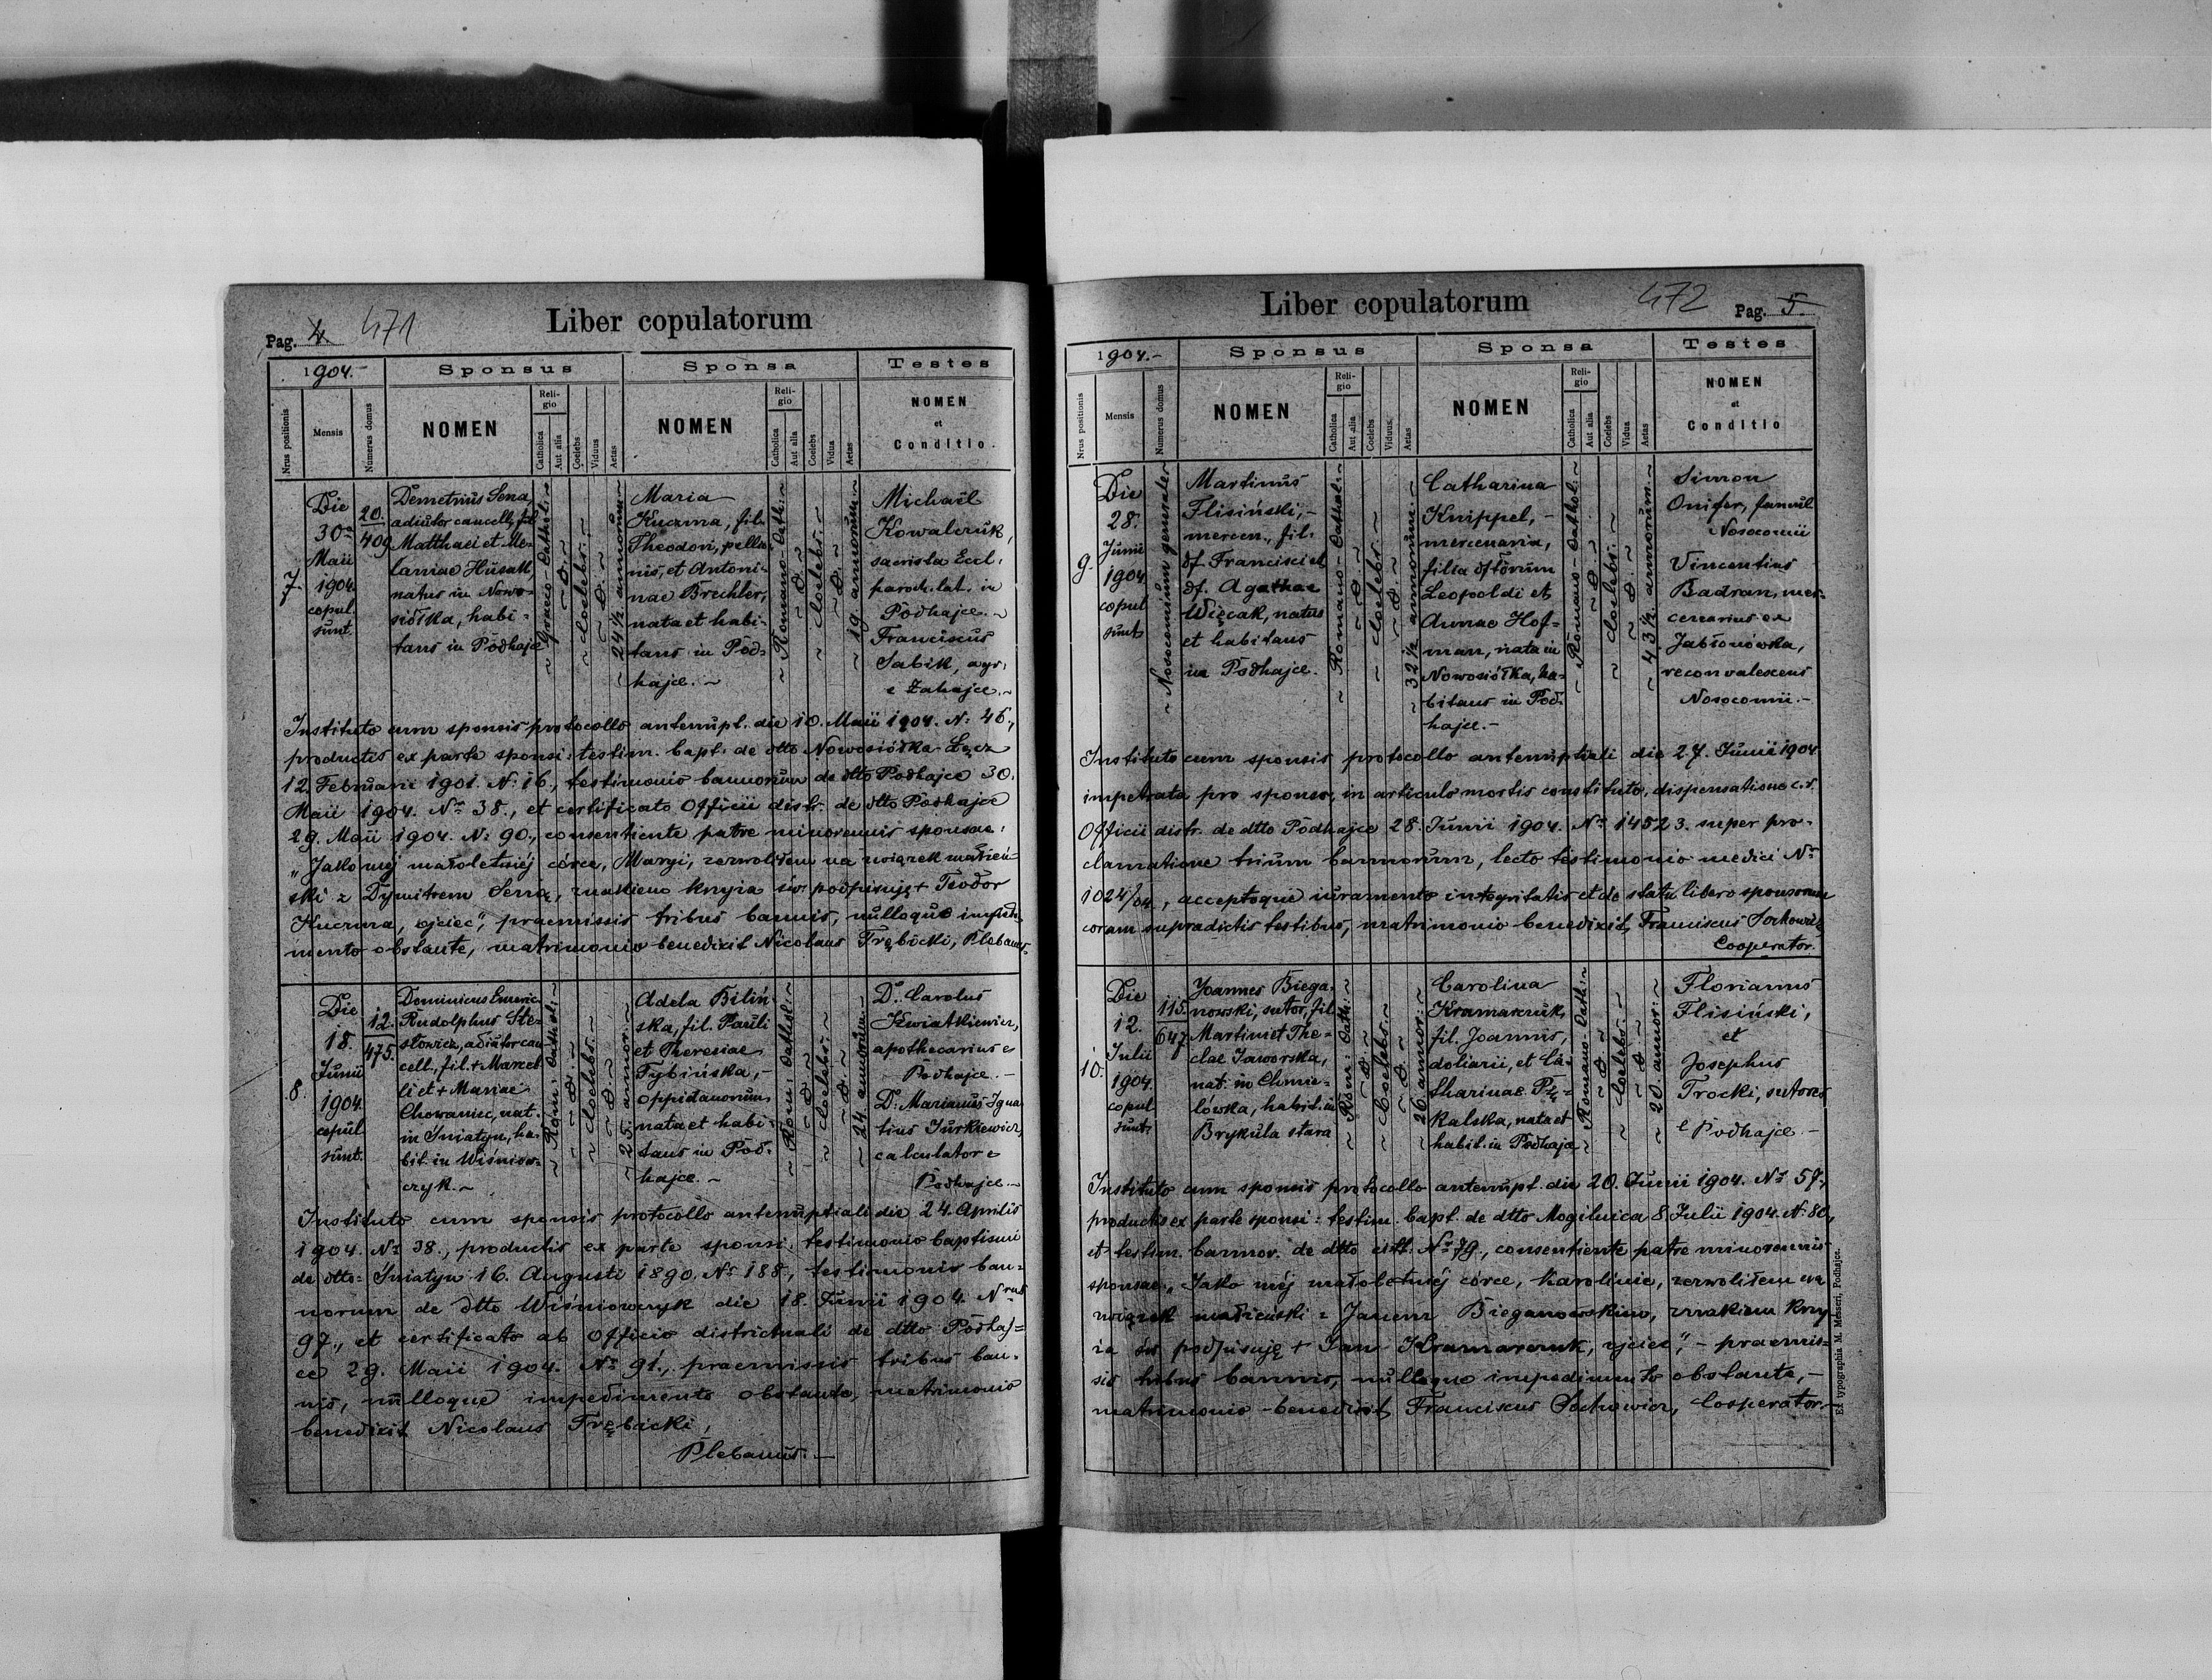 Pag. 4. 471
Liber copulatorum
1904.-
Sponsus
Sponsa
Testes
Nrus positionis
Mensis
Numerus domus
NOMEN
Religio
Catholica
Aut alia
Coelebs
Viduus
Aetas
NOMEN
Religio
Catholica
Aut alia
Coelebs
Vidua
Aetas
NOMEN
et
Conditio.
7.
Die
30a
Maii
1904.
copul.
sunt.
20.
409
Demetrius Sena,
adiutor cancell., fil.
Matthaei et Me-
laniae Husak,
natus in Nowo-
siółka, habi-
tans in Podhajce
~ Graeco-Cathol: ~
~ 0. ~
~ Coelebs. ~
~ 0. ~
~ 24½ annorum ~
Maria
Kuczma, fil.
Theodori, pellio-
nis, et Antoni-
nae Brechler,
nata et habi-
tans in Pod-
hajce. ~
~ Romano-Cath: ~
~ 0. ~
~ Coelebs. ~
~ 0. ~
~ 19. annorum. ~
Michaël
Kowalczuk,
sacrista Eccl.
paroch. lat. in
Podhajce. ~
Franciscus
Sabik, agr.
e Zahajce. ~
Instituto cum sponsis protocollo antenupt. die 10. Maii 1904. N: 46.,
productis ex parte sponsi: testim. bapt. de dtto Nowosiółka-Łęcz
12. Februarii 1901. N: 16., testimonio bannorum de dtto Podhajce 30.
Maii 1904. No 38., et certificato Officii distr. de dtto Podhajce
29. Maii 1904. N: 90., consentiente patre minorennis sponsae:
"Jako mej małoletniej córce, Maryi, zezwoliłem na związek małżeń-
ski z Dymitrem Seną, znakiem krzyża św. podpisuję + Teodor
Kuczma, ojciec", praemissis tribus bannis, nulloque impedi-
mento obstante, matrimonio benedixit Nicolaus Trębicki, Plebanus.
8.
Die
18.
Junii
1904.
copul.
sunt.
12.
475.
Dominicus Emeric.
Rudolphus Ste-
słowicz, adiutor can-
cell., fil. + Marcel-
li et + Mariae
Chowaniec, nat.
in Śniatyn, ha-
bit. in Wiśniow-
czyk. ~
~ Rom: Cathol: ~
~ 0. ~
~ Coelebs. ~
~ 0. ~
~ 25. annor. ~
Adela Biliń-
ska, fil. Pauli
et Theresiae
Tybińska, -
oppidanorum
nata et habi-
tans in Pod-
hajce. ~
~ Rom: Cathol: ~
~ 0. ~
~ Coelebs. ~
~ 0. ~
~ 24 annorum. ~
D. Carolus
Kwiatkiewicz,
apothecarius e
Podhajce. -
D. Marianus Igna-
tius Jurkiewicz,
calculator e
Podhajce. ~
Instituto cum sponsis protocollo antenuptiali die 24. Aprilis
1904. No 38., productis ex parte sponsi: testimonio baptismi
de dtto: Śniatyn 16. Augusti 1890. No 188., testimonio ban-
norum de dtto Wiśniowczyk die 18. Junii 1904. Nrus
97., et certificato ab Officio districtuali de dtto Podhaj-
ce 29. Maii 1904. No 91., praemissis tribus ban-
nis, nulloque impedimento obstante, matrimonio
benedixit Nicolaus Trębicki,
Plebanus. -
Liber copulatorum
472 Pag. 5.
1904.-
Sponsus
Sponsa
Testes
Nrus positionis
Mensis
Numerus domus
NOMEN
Religio
Catholica
Aut alia
Coelebs
Viduus.
Aetas
NOMEN
Religio
Catholica
Aut alia
Coelebs
Vidua
Aetas
NOMEN
et
Conditio
9.
Die
28.
Junii
1904.
copul.
sunt.
~ Nosocomium generale ~
Martinus
Flisiński, -
mercen., fil.
df. Francisci et
df. Agathae
Więcak, natus
et habitans
in Podhajce.
~ Romano-Cathol. ~
~ 0. ~
~ Coelebs. ~
~ 0. ~
~ 32½ annorum. ~
Catharina
Knippel, -
mercenaria,
filia dftorum
Leopoldi et
Annae Hof-
man, nata in
Nowosiółka, ha-
bitans in Pod-
hajce. -
~ Romano-Cathol. ~
~ 0. ~
~ Coelebs. ~
~ 0. ~
~ 43½. annorum. ~
Simon
Onifer, famul.
Nosocomii
Vincentius
Badran, mer-
cenarius ex
Jabłonówka,
reconvalescens
Nosocomii. -
Instituto cum sponsis protocollo antenuptiali die 27. Junii 1904
impetrata pro sponso, in articulo mortis constituto, dispensatione c. r.
Officii distr. de dtto Podhajce 28. Junii 1904. No 14523. super pro-
clamatione trium bannorum, lecto testimonio medici No
1024/04., acceptoque iuramento integritatis et de statu libero sponsorum
coram supradictis testibus, matrimonio benedixit, Franciscus Sochowicz
Cooperator.
10.
Die
12.
Julii
1904.
copul.
sunt.
115.
647
Joannes Biega-
nowski, sutor, fil.
Martini et The-
clae Jaworska,
nat. in Chmie-
lówka, habit. in
Brykula stara
~ Rom: Cath: ~
~ 0. ~
~ Coelebs. ~
~ 0. ~
~ 26. annor: ~
Carolina
Kramarczuk,
fil. Joannis,
doliarii, et Ca-
tharinae Pę-
kalska, nata et
habit. in Podhajce
~ Romano-Cath: ~
~ 0. ~
~ Coelebs. ~
~ 0. ~
~ 20. annor: ~
Florianus
Flisiński,
et
Josephus
Trocki, sutores
e Podhajce. -
Instituto cum sponsis protocollo antenupt. die 20. Junii 1904. No 57.,
productis ex parte sponsi: testim. bapt. de dtto Mogilnica 8. Julii 1904. N: 80.,
et testim. bannor. de dtto citt. No 79., consentiente patre minorennis
sponsae: "Jako mej małoletniej córce, Karolinie, zezwoliłem na
związek małżeński z Janem Bieganowskim, znakiem krzy-
ża św. podpisuję + Jan Kramarczuk, ojciec", - praemis-
sis tribus bannis, nulloque impedimento obstante, -
matrimonio benedixit Franciscus Sochowicz, Cooperator. -
Ex typographia M. Messeri, Podhajce.